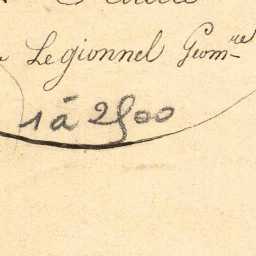 Legionnel Geom.re
1 à 2500